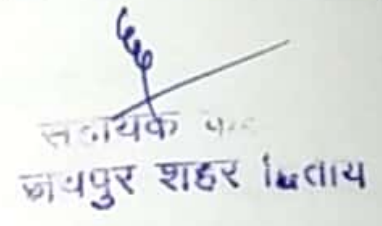 सहायक
जयपुर शहर द्वितीय